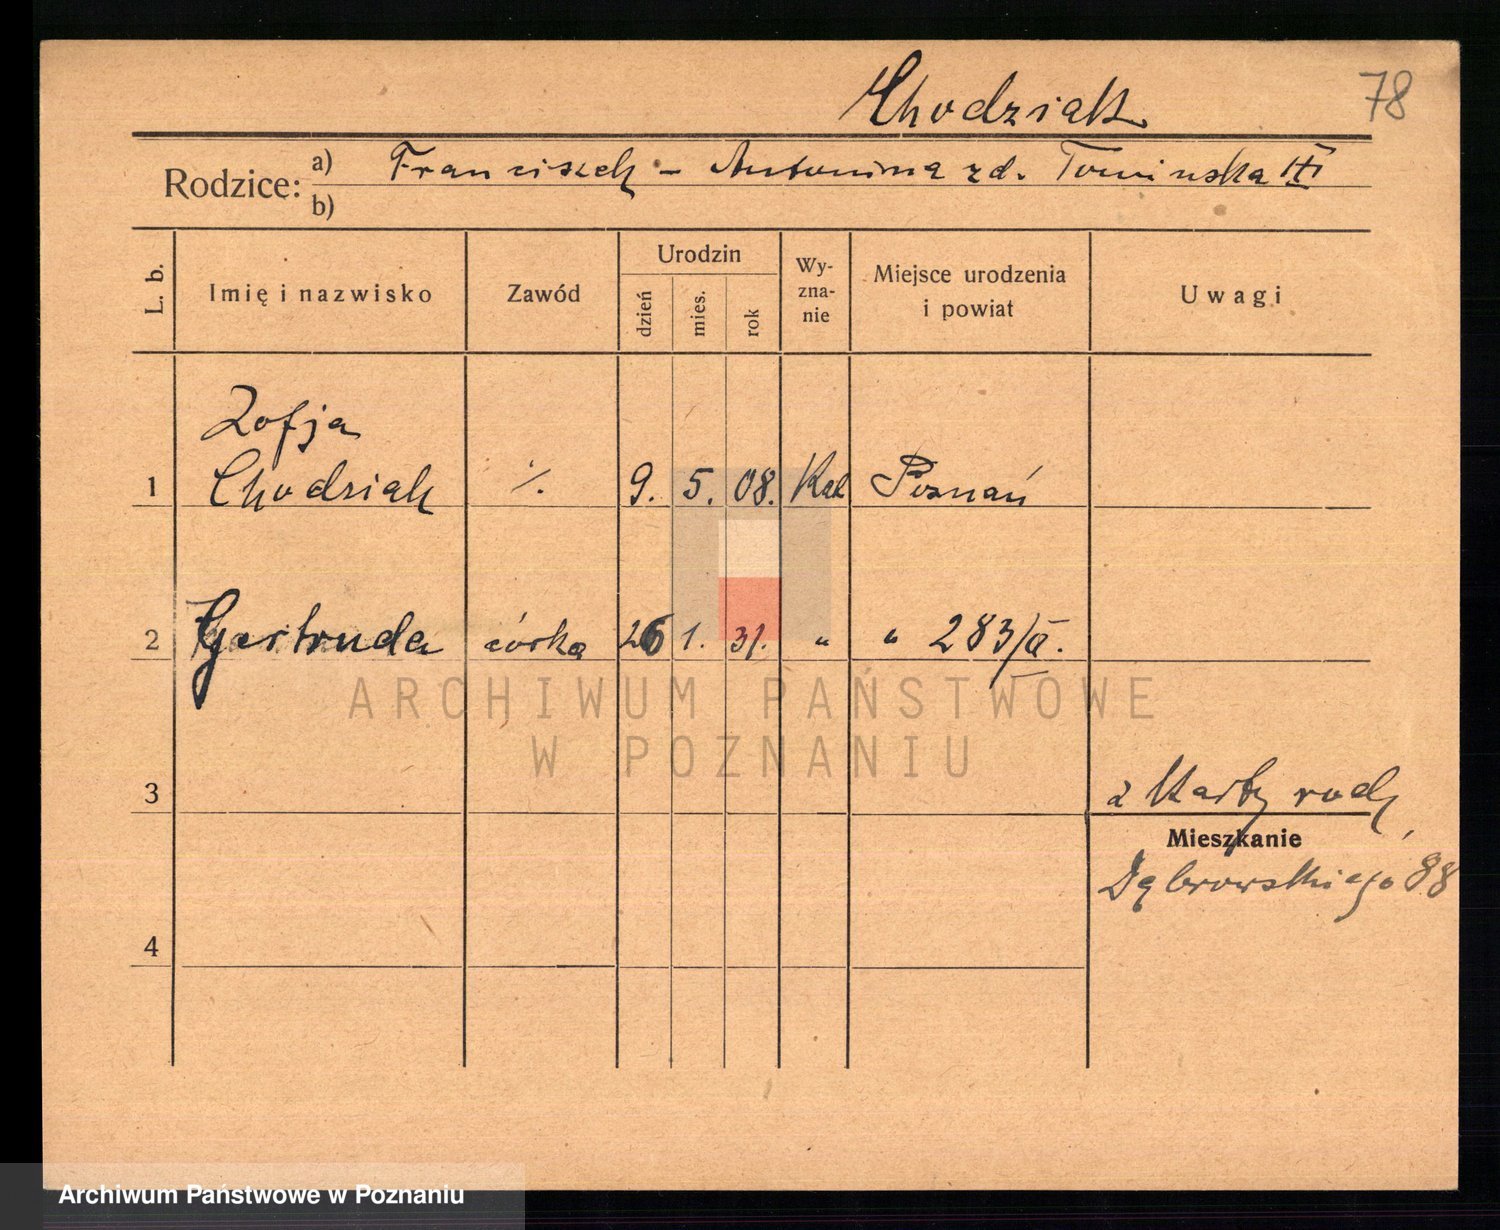 Chodziak
78
Rodzice: a) Franciszek – Antonina zd. Tomińska
b)
L. b. Imię i nazwisko Zawód Urodzin dzień mies. rok Wy-zna-nie Miejsce urodzenia i powiat Uwagi
Zofja
1 Chodziak ·/. 9. 5. 08. Kat Poznań
2 Gertruda córka 26 1. 31. „ „ 283/II.
ARCHIWUM PAŃSTWOWE
W POZNANIU
3 z Karty rodz.
Mieszkanie
Dąbrowskiego 88
4
Archiwum Państwowe w Poznaniu